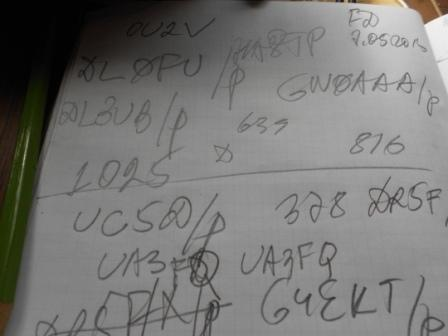 OU2V FD
7.05200
DL0FU /p HA8TP
GW0AAA/p
DL3UB/p 639 876
1025
UC5D/p 328 DR5F
UA3FQ UA3FQ
G4EKT/p